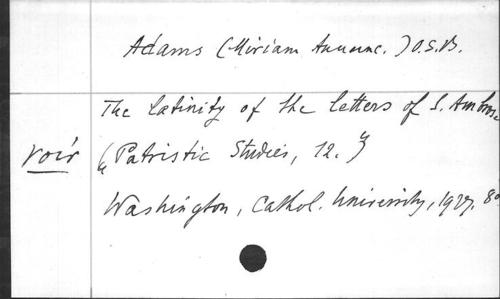 Adams (Miriam Annunc.) O.S.B.
The latinity of the letters of S. Ambrose
voir
("Patristic Studies, 12.")
Washington, Cathol. University, 1927. 8º